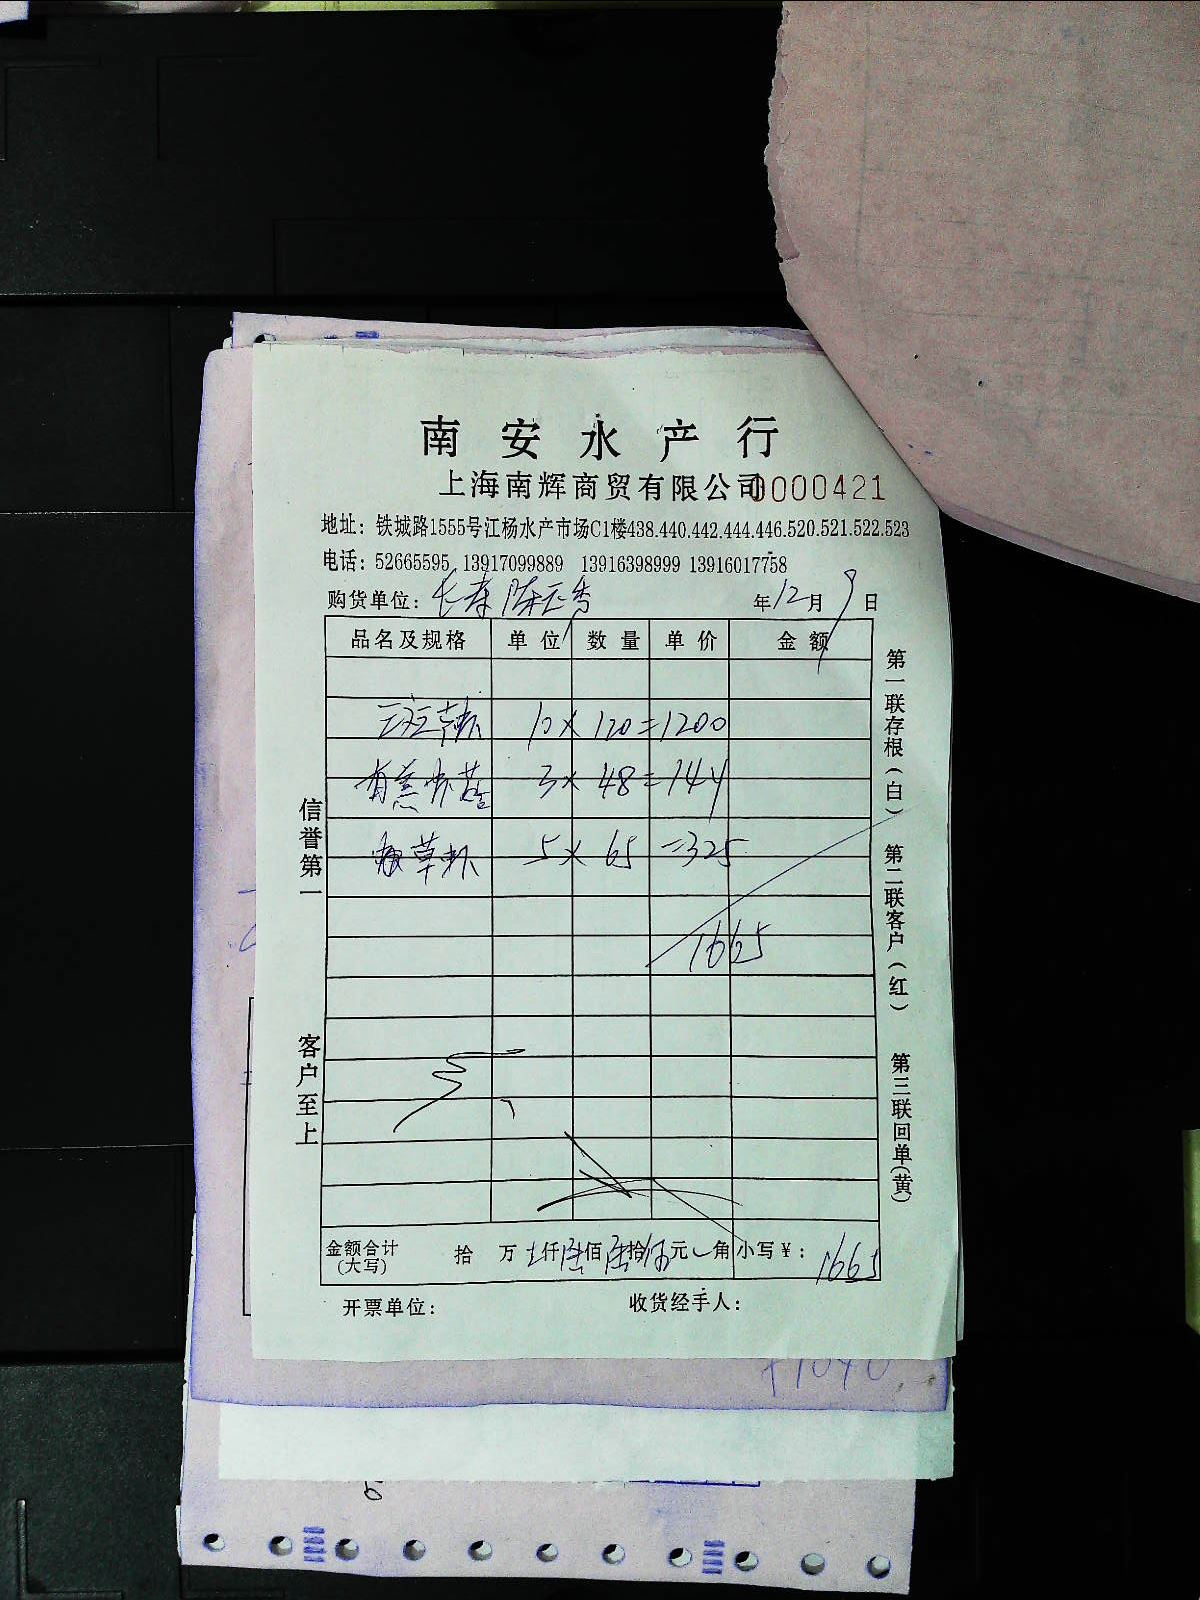 南安水产行
上海南辉商贸有限公司 0000421
地址：铁城路1555号江杨水产市场C1楼438.440.442.444.446.520.521.522.523
电话：52665595 13917099889 13916398999 13916017758
购货单位： 年12月9日
品名及规格 单位 数量 单价 金额
10×120=1200
3×48=144
草虾 5×65=325
1665
金额合计(大写) 拾 万 仟陆佰陆拾伍元 角 小写￥：1665
开票单位： 收货经手人：
信誉第一
客户至上
第一联存根(白)
第二联客户(红)
第三联回单(黄)